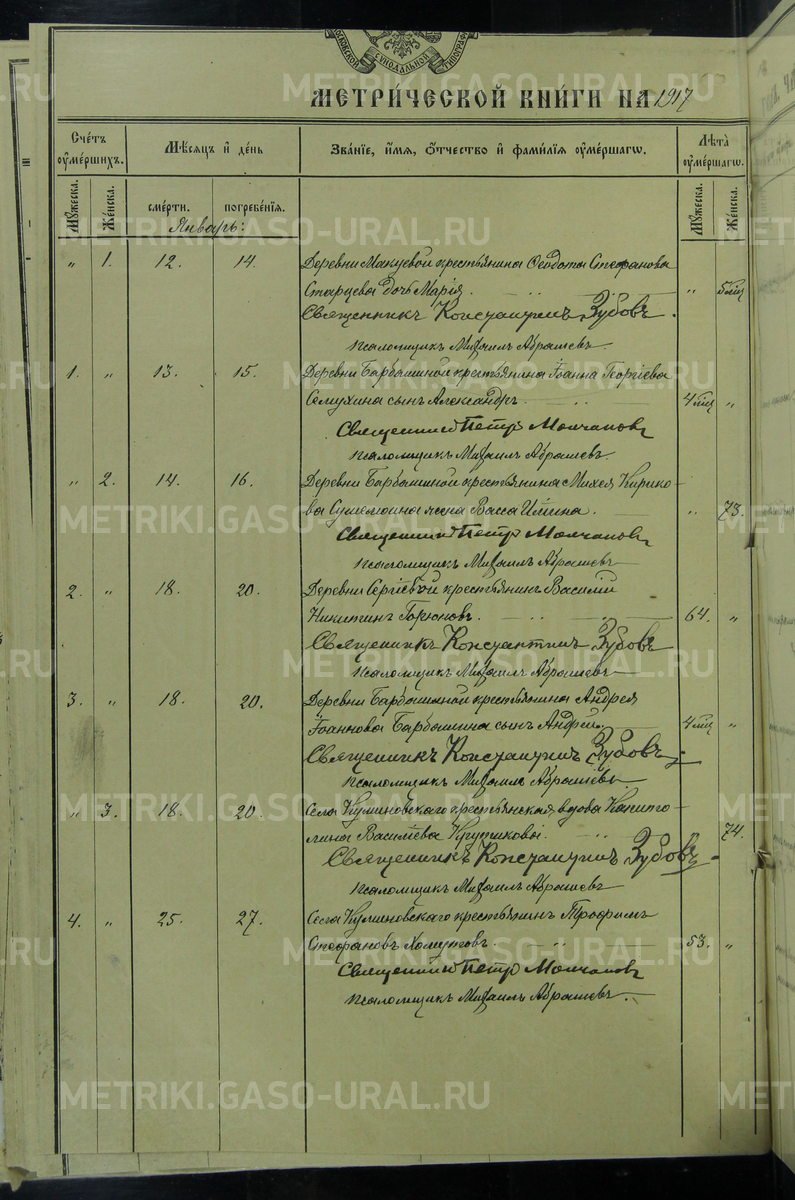 МОСКОВСКОЙ СѴНОДАЛЬНОЙ ТИПОГРАФ
МЕТРИ́ЧЕСКОЙ КНИ́ГИ НА 1917
Сче́тъ ᲂу҆ме́ршихъ.
Мѣ́сяцъ и҆ де́нь
Зва́нїе, и҆́мѧ, ѻ҆́тчество и҆ фами́лїѧ ᲂу҆ме́ршагѡ.
Лѣ́та ᲂу҆ме́ршагѡ.
Мꙋ́жеска. Же́нска.
сме́рти. погребе́нїѧ.
Мꙋ́жеска. Же́нска.
Январь:
" 1. 12. 14. Деревни Макуевой крестьянина Ѳеодота Стефанова
Старцева дочь Марія. " 5 мѣц
Священникъ Константинъ Зубовъ.
Псаломщикъ Михаилъ Абрашевъ
1. " 13. 15. Деревни Барбашиной крестьянина Іоанна Георгіева
Семухина сынъ Александръ. 4 мѣц "
Священникъ Петръ Молчановъ
Псаломщикъ Михаилъ Абрашевъ.
" 2. 14. 16. Деревни Барбашиной крестьянина Михея Кирико-
ва жена Васса Ильина. " 73.
Священникъ Петръ Молчановъ
Псаломщикъ Михаилъ Абрашевъ
2. " 18. 20. Деревни Сергіевой крестьянинъ Василій
Никитинъ Горюновъ. 64. "
Священникъ Константинъ Зубовъ
Псаломщикъ Михаилъ Абрашевъ
3. " 18. 20. Деревни Барбашиной крестьянина Андрея
Іоаннова Барбашина сынъ Андрей. 4 мѣц "
Священникъ Константинъ Зубовъ.
Псаломщикъ Михаилъ Абрашевъ
" 3. 18. 20. Села Куминовскаго крестьянская вдова Капито-
лина Василіева Крутикова. " 74.
Священникъ Константинъ Зубовъ
Псаломщикъ Михаилъ Абрашевъ
4. " 25. 27. Села Куминовскаго крестьянинъ Трофимъ
Стефановъ Хомутовъ. 53. "
Священникъ Петръ Молчановъ
Псаломщикъ Михаилъ Абрашевъ.
METRIKI.GASO-URAL.RU